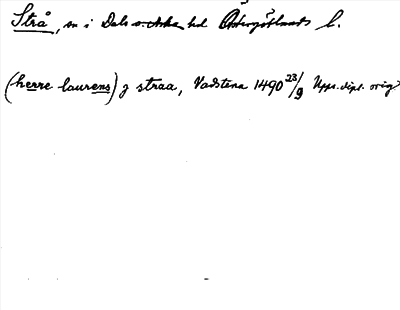 Strå, sn i Dals hd Östergötlands l.
(herre laurens) j straa, Vadstena 1490 23/9 Upps. dipl. orig